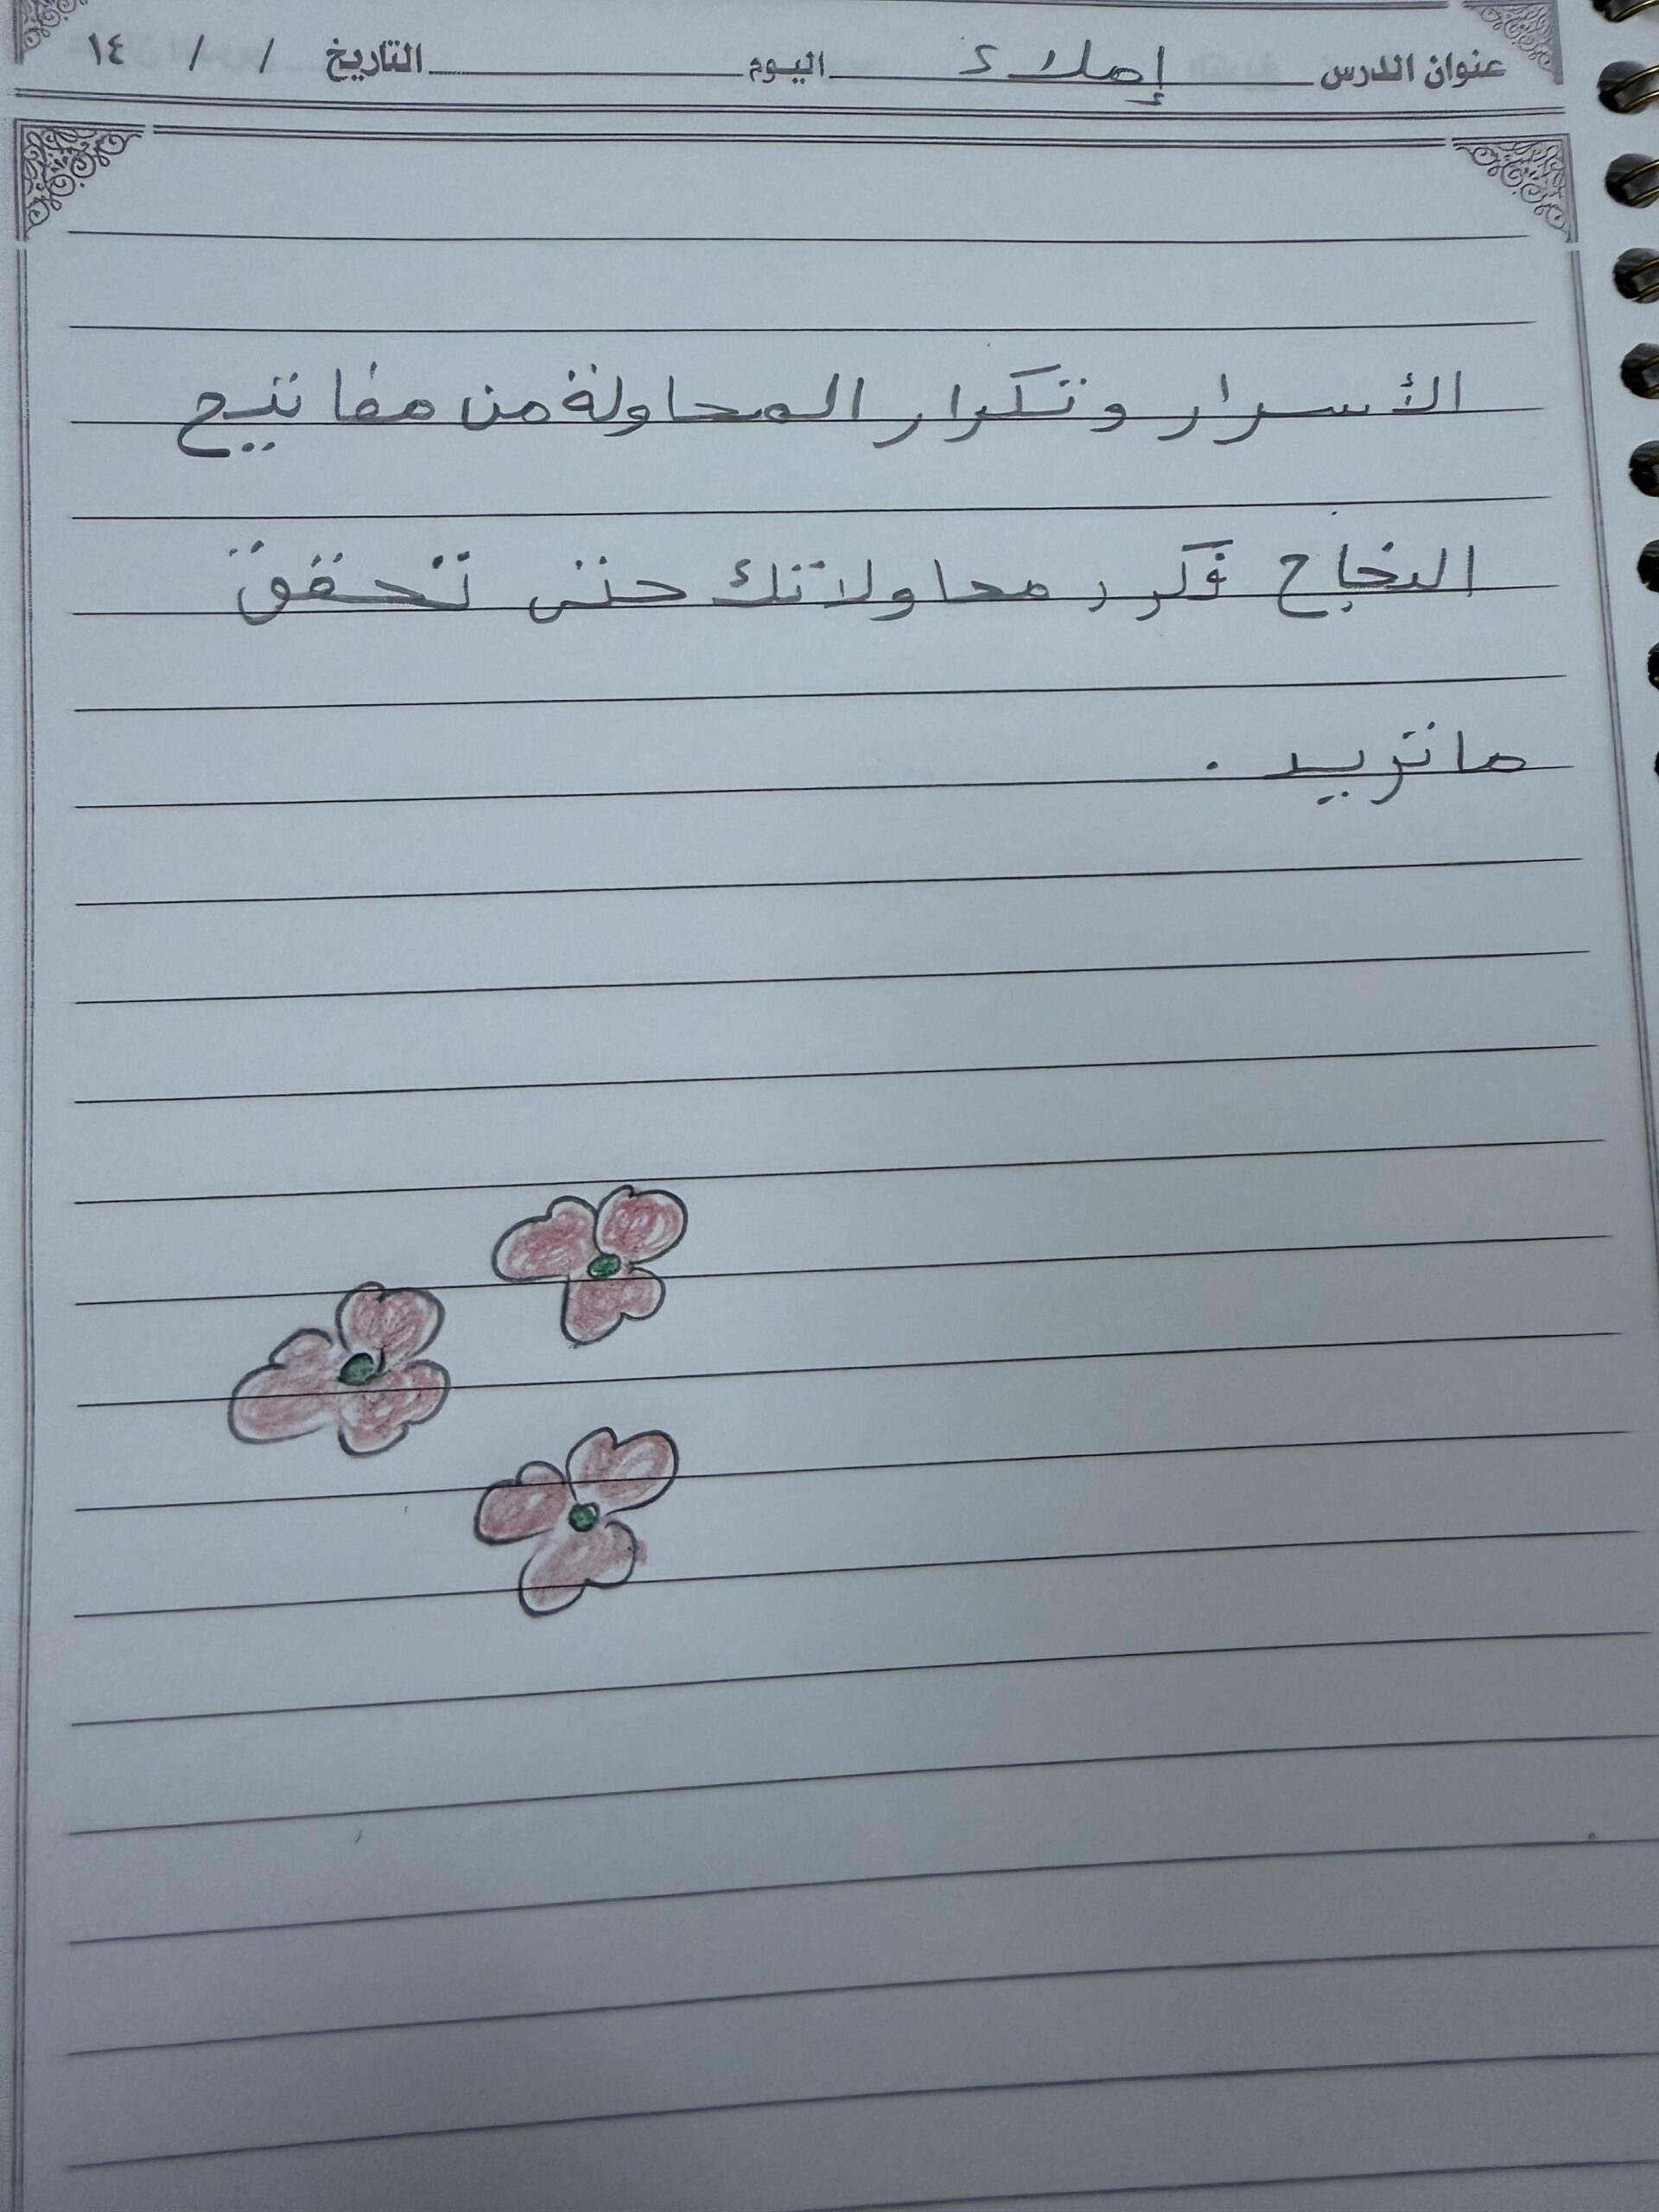 عنوان الدرس إملاء اليوم التاريخ / / ١٤
الأسرار وتكرار المحاولة من مفاتيح
النجاح فكرر محاولاتك حتى تحقق
ما تريد .